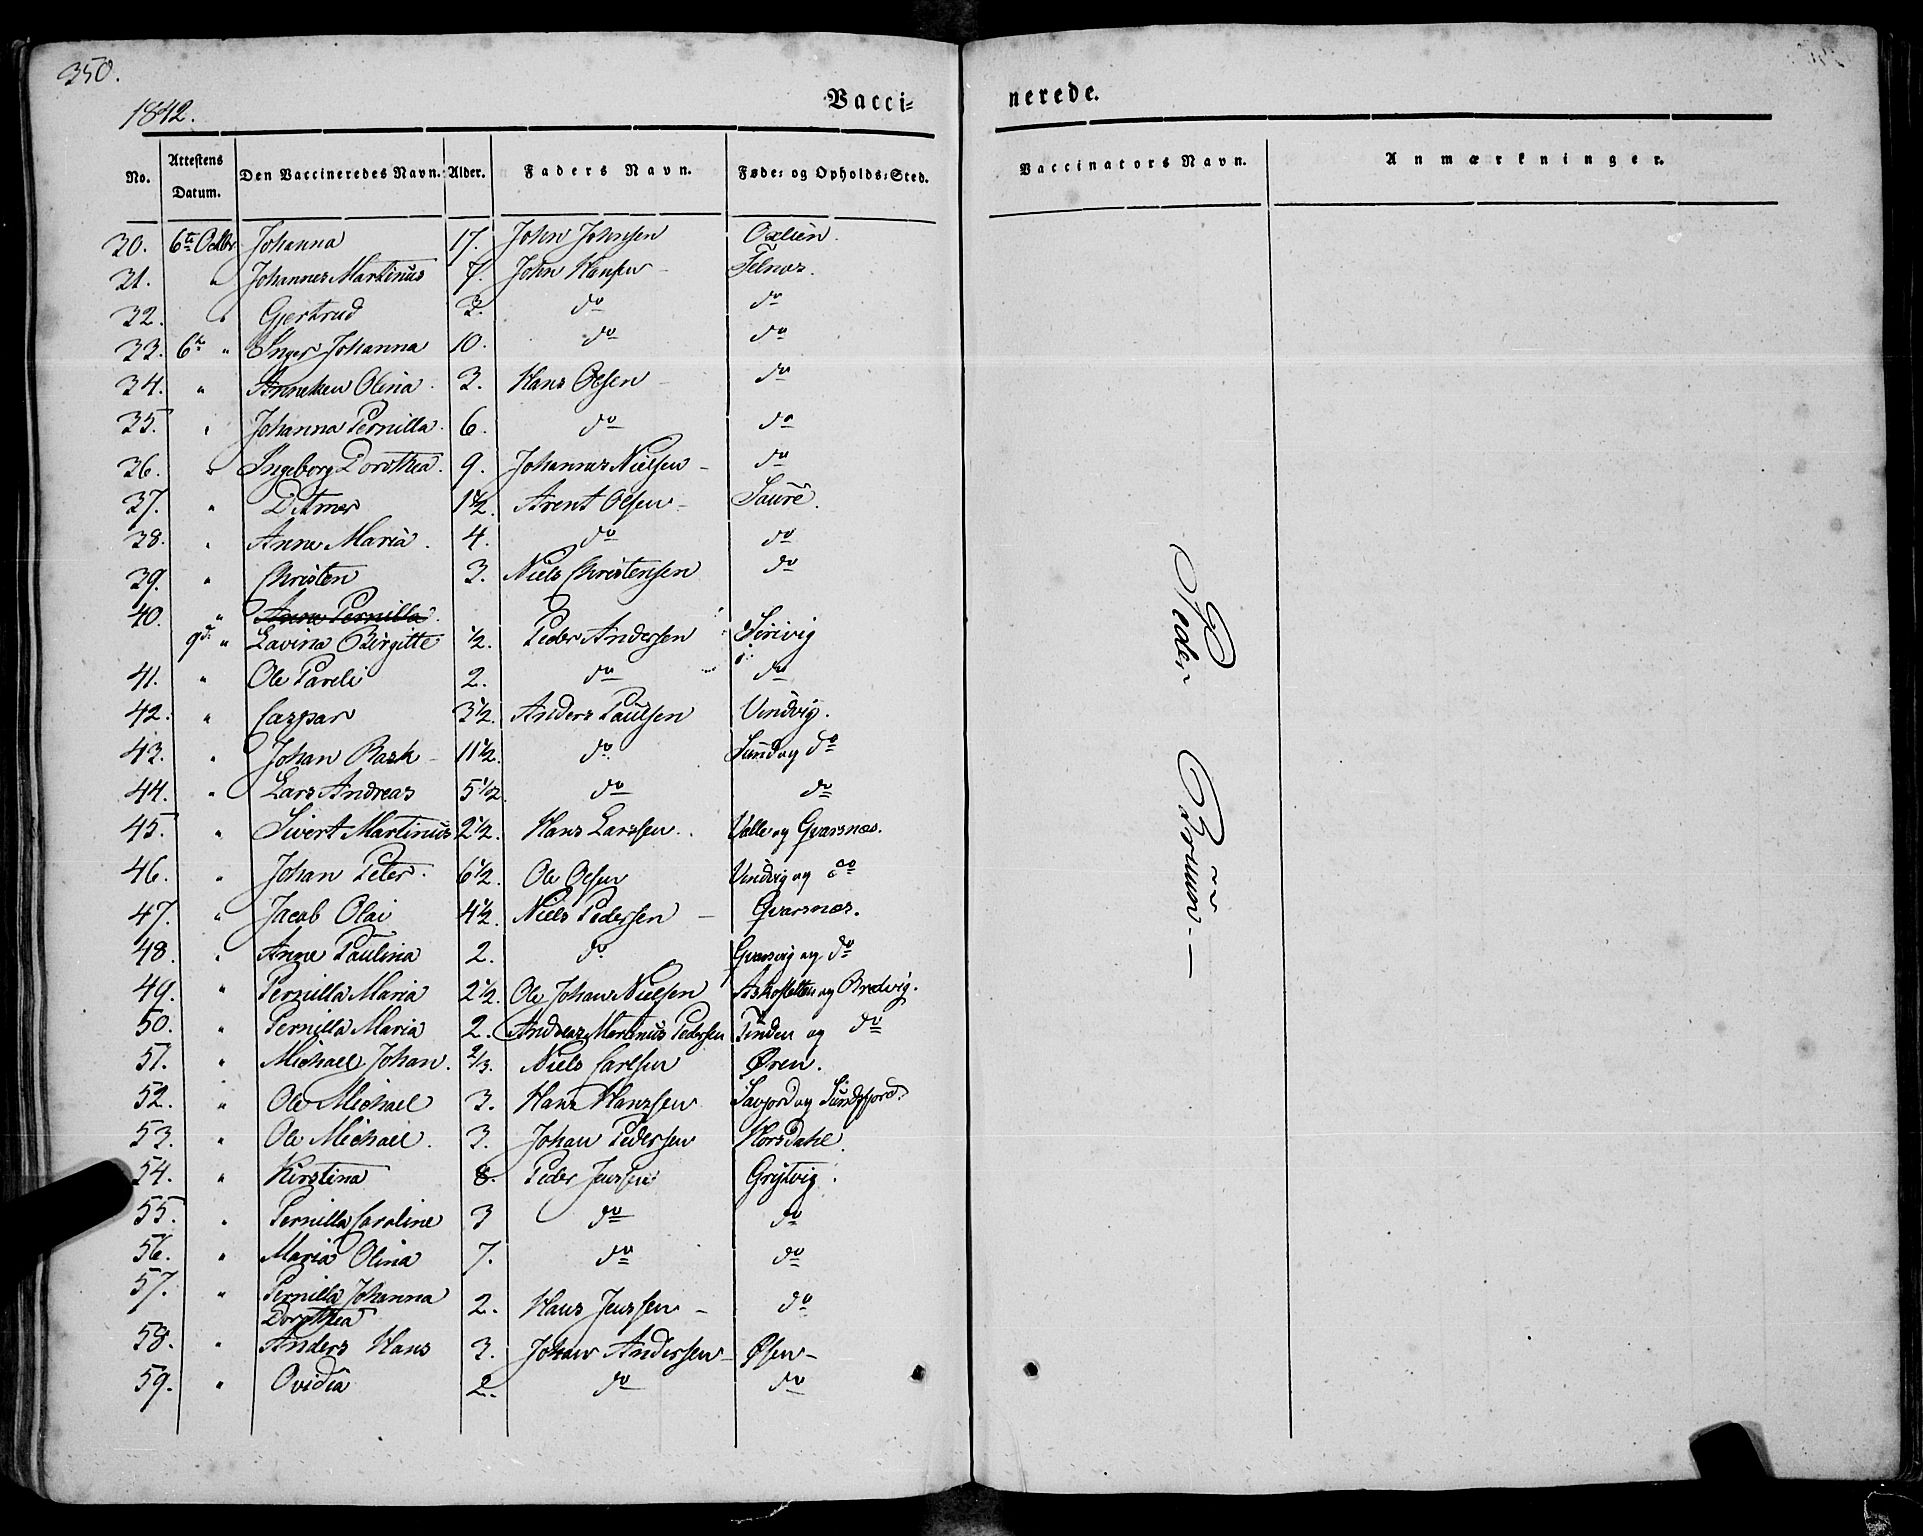 350.
1842.
Vacci-
nerede.
No. Attestens Datum. Den Vaccineredes Navn. Alder. Faders Navn. Føde- og Opholds-Sted. Vaccinators Navn. Anmærkninger.
30. 6te Octbr Johanna 17. John Johnsen Oxlien.
31. " Johannes Martinus 7. John Hansen Felnes.
32. " Gjertrud 3. do do
33. 6te " Inger Johanna 10. do do
34. " Anneken Olina 3. Hans Olsen do
35. " Johanna Pernilla. 6. do do
36. " Ingeborg Dorothea. 9. Johannes Nielsen do
37. " Ditmar 1 1/2. Arent Olsen Saurē.
38. " Anne Maria. 4. do do
39. " Christen 3. Niels Christensen do
40. " Anne Pernilla.
9de " Lavina Birgitte 1/2. Peder Andersen Sørivig
41. " Ole Pareli 2. do do
42. " Caspar 3 1/2. Anders Paulsen Vindvig.
43. " Johan Rask 11 1/2. do Sund og do
44. " Lars Andreas 5 1/2. do do
45. " Sivert Martinus 2 1/2. Hans Larssen. Valle og Gvarsnæs.
46. " Johan Peter. 6 1/2. Ole Olsen Vindvig og do
47. " Jacob Olai 4 1/2. Niels Pedersen Gvarsnæs.
48. " Anne Paulina 2. do Gvarvig og do
49. " Pernilla Maria 2 1/2. Ole Johan Nielsen og Bredvig.
50. " Pernilla Maria 2. Andreas Martinus Pedersen Tinden og do
51. " Michael Johan. 2/3. Niels Carlsen Øren.
52. " Ole Michael 3. Hans Hanssen Savjord og Sundsfjord.
53. " Ole Michael. 3. Johan Pedersen Horsdahl.
54. " Kirstina 8. Peder Jenssen Grytvig.
55. " Pernilla Caroline 3 do do
56. " Maria Olina 7. do do
57. " Pernilla Johanna
Dorothea 2. Hans Jenssen do
58. " Anders Hans 3. Johan Andersen Øsen
59. " Ovidia 2. do do
Peder Brüün.